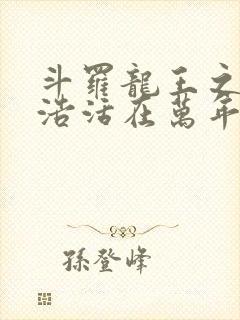 斗羅龍王之
浩活在萬年
孫登峰